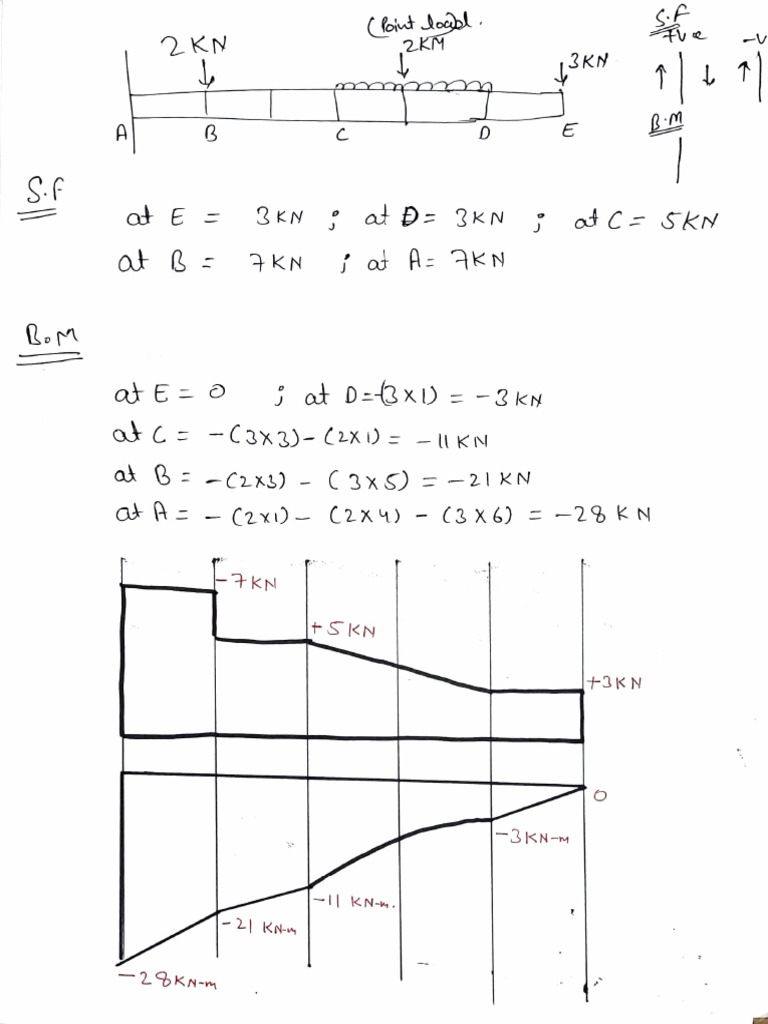 (Point load).
S.F
2KN
2KM
3KN
+ve
-v
B.M
A B C D E
S.F
at E = 3KN ; at D = 3KN ; at C = 5KN
at B = 7KN ; at A = 7KN
B.M
at E = 0 ; at D = -(3x1) = -3KN
at C = -(3x3)-(2x1) = -11KN
at B = -(2x3) - (3x5) = -21KN
at A = -(2x1) - (2x4) - (3x6) = -28KN
-7KN
+5KN
+3KN
0
-3KN-m
-11 KN-m.
-21 KN-m
-28KN-m